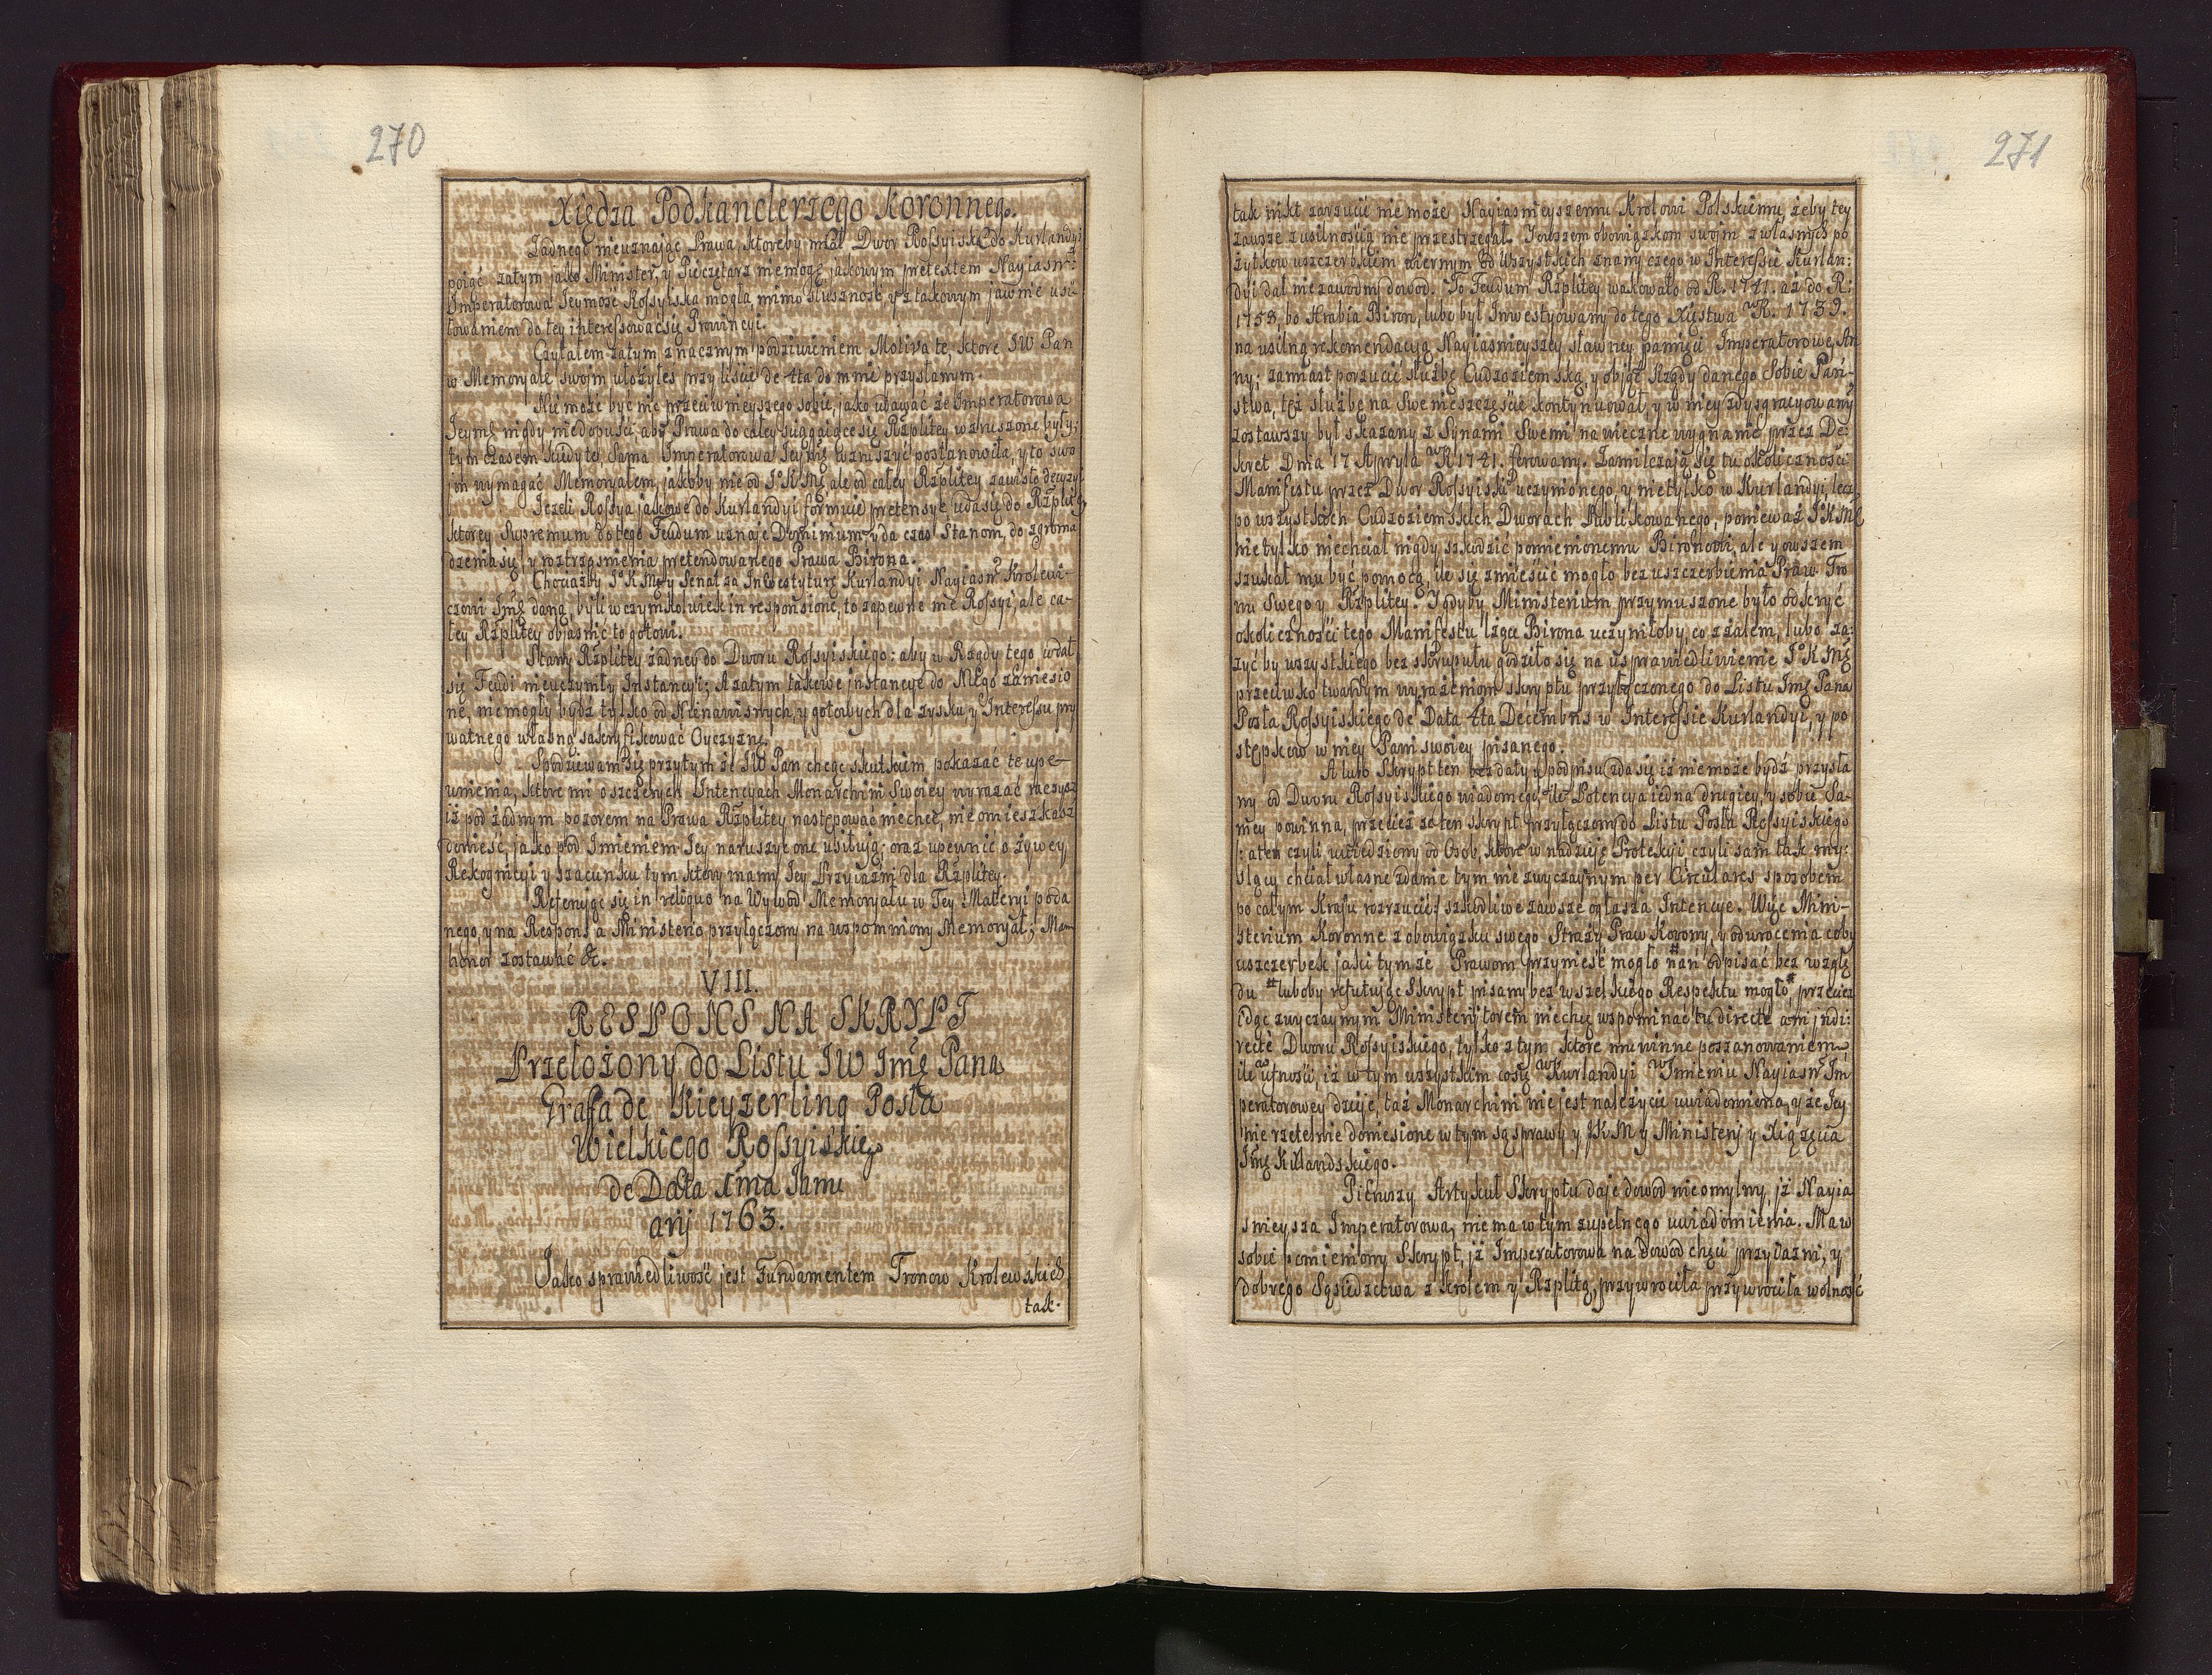 270
Xiędza Podkanclerzego Koronneg.
Żadnego nieuznając Prawa, ktoreby miał Dwor Rossyiski do Kurlandyi
poiąć zatym jako Minister, y Pieczętarz niemogę jakowym pretextem Nayiasn:
Imperatorowa Jeymośc Rossyiska mogła, mimo słuszność, y z takowym jawnie usi-
łowaniem do tey interessować się Prowincyi.
Czytałem zatym znacznym podziwieniem Motiva te, ktore JW Pan
w Memoryale swoim ułożyłes przy liście de 4ta do mnie przysłanym.
Nie może być nic przeciwnieyszego sobie, jako udawać że Imperatorowa
Jeymć nigdy niedopuści aby Prawa do całey sciągaiące się Rzplitey wzruszone były;
tym czasem kiedy te sama Imperatorowa Jeymć wzruszyć postanowiła, y to swo
im wymagać Memoryałem, jakoby nie od J°K Mć ale od całey Rzplitey zawisło decyzyi
Jezeli Rossya jakowe do Kurlandyi formuie pretensye udasię do Rzplitey
ktorey Supremum do tego Feudum uznaje Dominium, y da czas Stanom, do zgroma
dzenia się y roztrząsnienia pretendowanego Prawa Birona.
Chociażby J°K Mć y Senat za Inwestyturę Kurlandyi Nayiasn° Krolewi-
czowi Jmć daną, byli w czymkolwiek in responsione, to zapewne nie Rossyi, ale ca-
łey Rzplitey objasnić to gotowi.
Stany Rzplitey żadney do Dworu Rossyiskiego: aby w Rządy tego wdał
się Feudi nieuczyniły Instancyi; A zatym takowe jnstancye do Niego zaniesio
ne, niemogły bydz tylko od Nienawisnych, y gotowych dla zysku y Interessu pry
watnego własną sakryfikować Oyczyznę.
Spodziewam się przytym że JW Pan chcąc skutkiem pokazać te upe-
wnienia, ktore mi o szczerych Intencyach Monarchini Swoiey wyrazać raczysz
iż pod żadnym pozorem na Prawa Rzplitey następować niechce, nie omieszkasz
donieść, jako pod Imieniem Jey naruszyć one usiłują; oraz upewnić o żywey
Rekognicyi y szacunku tym ktory mamy Jey Przyiazni dla Rzplitey.
Referując się in reliquo na Wywod Memoryału w Tey Materyi poda
nego, y na Respons a Ministerio przyłączony na wspomniony Memoryał; Mam
honor zostawać &c.
VIII.
RESPONS NA SKRYPT
Przełożony do Listu JW Jmć Pana
Graffa de Kieyzerling Posła
Wielkiego Rossyiskieg°
de Data 1ma Janu
arij 1763.
Jako sprawiedliwość jest Fundamentem Tronow Krolewskich
tak.
271
tak nikt zarzucić nie może Nayiasnieyszemu Krolowi Polskiemu, żeby tey
zawsze z usilnością nie przestrzegał. Jowszem obowiązkom swoim z własnych po
żytkow uszczerbkiem wiernym od Wszystkich znany czego w Interessie Kurlan:
dyi dał niezawodny dowod. To Feudum Rzplitey wakowało od R. 1741. aż do R:
1758, bo Hrabia Biron, lubo był Inwestyowany do tego Xięstwa w R. 1739.
na usilną rekomendacyą Nayiasnieyszey sławney pamięci Imperatorowe, An
ny: zamiast porzucić służbę Cudzoziemską, y objąć Rządy danego Sobie Pań-
stwa, tęż służbę na Swe nieszczęście kontynuował, y w niey zdysgracyowany
zostawszy był skazany z Synami Swemi na wieczne wygnanie przez De:
kret Dnia 17 Apryla w R 1741. ferowany. Zamilczają się tu okoliczności
Manifestu przez Dwor Rossyiski uczynionego, y nietylko w Kurlandyi, lecz
po wszystkich Cudzoziemskich Dworach Publikowanego, ponieważ J°K Mć
nietylko niechciał nigdy szkodzić pomienionemu Bironowi, ale y owszem
szukał mu być pomocą, ile się zmieścić mogło bez uszczerbienia Praw Tro
nu Swego y Rzplitey. I gdyby Ministerium przymuszone było odkryć
okoliczności tego Manifestu lżące Birona uczyniłoby, co z żalem, lubo za:
żyć by wszystkiego bez skrupułu godziło się na usprawiedliwienie J°K Mć
przeciwko twardym wyrażeniom skryptu przyłączonego do Listu Jmć Pana
Posła Rossyiskiego de Data 4ta Decembris w Interessie Kurlandyi, y po
stępkow w niey Pani swoiey pisanego.
A lubo Skrypt ten bez daty y podpisu zda się iż nie może bydź przysła
ny od Dworu Rossyiskiego wiadomego, ile Potencya iedna drugiey, y sobie Sa-
mey powinna, przecież ze ten skrypt przyłączony do Listu Posła Rossyiskiego
/: aten czyli uwiedziony od Osob, ktore w nadzieję Protekcyi, czyli sam tak my:
slący chciał własne zdanie tym nie zwyczaynym per Circulares sposobem
po całym Kraju rozrzucić :/ szkodliwe zawsze ogłasza Intencye. Więc Mini-
sterium Koronne z obowiązku swego Straży Praw Korony, y odwrocenia coby
uszczerbek jaki tymze Prawom przynieść mogło nań odpisać bez wzglę
du luboby refutując Skrypt pisany bez wszelkiego Respektu mogło, przecież
idąc zwyczaynym Ministerij torem niechcę wspominać tu directe ani jndi:
recte Dworu Rossyiskiego, tylko z tym ktore mu winne poszanowaniem
ile w ufności, iż w tym wszystkim co się w Kurlandyi w Imieniu Nayiasn° Im
peratorowey dzieje, taż Monarchini nie jest należycie uwiadomiona, y że Jey
nie rzetelnie doniesione w tym są sprawy y JK M y Ministerij y Xiążęcia
Jmć Kurlandskiego.
Pierwszy Artykuł Skryptu daje dowod nieomylny, iż Nayia
snieysza Imperatorowa, nie ma w tym zupełnego uwiadomienia. Ma w
sobie pomieniony Skrypt, iż Imperatorowa na dowod chęci przyiazni, y
dobrego Sąsiedzctwa z Krolem y Rzplitą, przywrociła przywrociła wolność